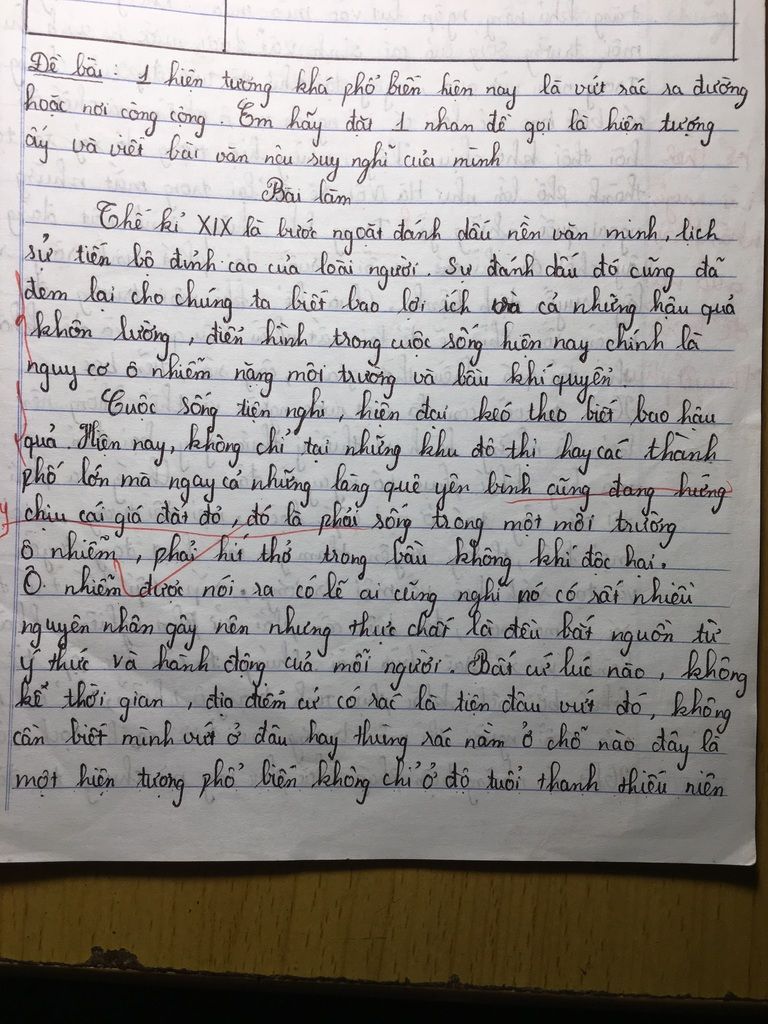 Đề bài : 1 hiện tượng khá phổ biến hiện nay là vứt rác ra đường
hoặc nơi công cộng. Em hãy đặt 1 nhan đề gọi là hiện tượng
ấy và viết bài văn nêu suy nghĩ của mình
Bài làm
Thế kỉ XIX là bước ngoặt đánh dấu nền văn minh, lịch
sử tiến bộ đỉnh cao của loài người. Sự đánh dấu đó cũng đã
đem lại cho chúng ta biết bao lợi ích và cả những hậu quả
khôn lường, điển hình trong cuộc sống hiện nay chính là
nguy cơ ô nhiễm nặng môi trường và bầu khí quyển.
Cuộc sống tiện nghi, hiện đại kéo theo biết bao hậu
quả. Hiện nay, không chỉ tại những khu đô thị hay các thành
phố lớn mà ngay cả những làng quê yên bình cũng đang hứng
chịu cái giá đắt đỏ, đó là phải sống trong một môi trường
ô nhiễm, phải hít thở trong bầu không khí độc hại.
Ô nhiễm được nói ra có lẽ ai cũng nghĩ nó có rất nhiều
nguyên nhân gây nên nhưng thực chất là đều bắt nguồn từ
ý thức và hành động của mỗi người. Bất cứ lúc nào, không
kể thời gian, địa điểm cứ có rác là tiện đâu vứt đó, không
cần biết mình vứt ở đâu hay thùng rác nằm ở chỗ nào đây là
một hiện tượng phổ biến không chỉ ở độ tuổi thanh thiếu niên